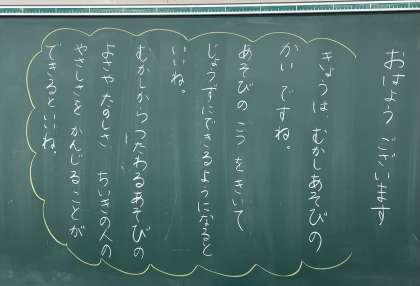 おはよう ございます
きょうは、むかしあそびの
かい ですね。
あそびの こつ をきいて
じょうずにできるようになると
いいね。
むかしからつたわるあそびの
よさや たのしさ ちいきの人の
やさしさを かんじることが
できるといいね。